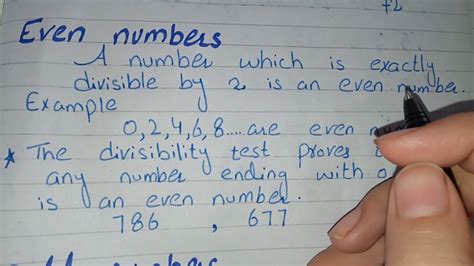 +2
Even numbers
A number which is exactly
divisible by 2 is an even number.
Example
0,2,4,6,8.... are even
* The divisibility test proves
any number ending with 0
is an even number.
786 , 677
numbers